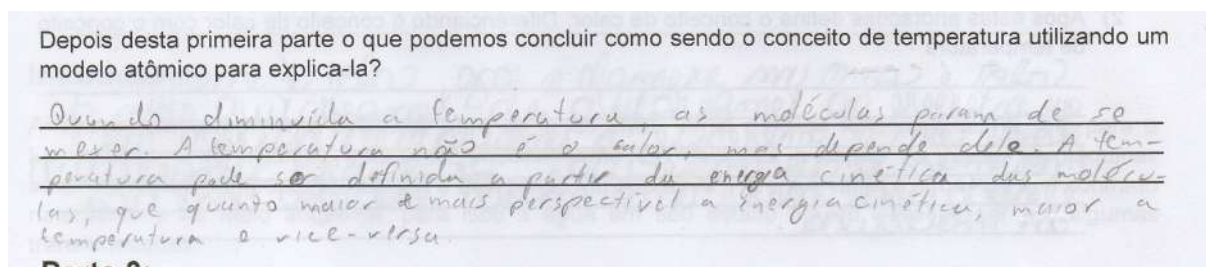 Depois desta primeira parte o que podemos concluir como sendo o conceito de temperatura utilizando um
modelo atômico para explica-la?
Quando diminuida a temperatura, as moléculas param de se
mexer. A temperatura não é o calor, mas depende dele. A tem-
peratura pode ser definida a partir da energia cinética das molécu-
las, que quanto maior e mais perspectivel a energia cinética, maior a
temperatura e vice-versa.